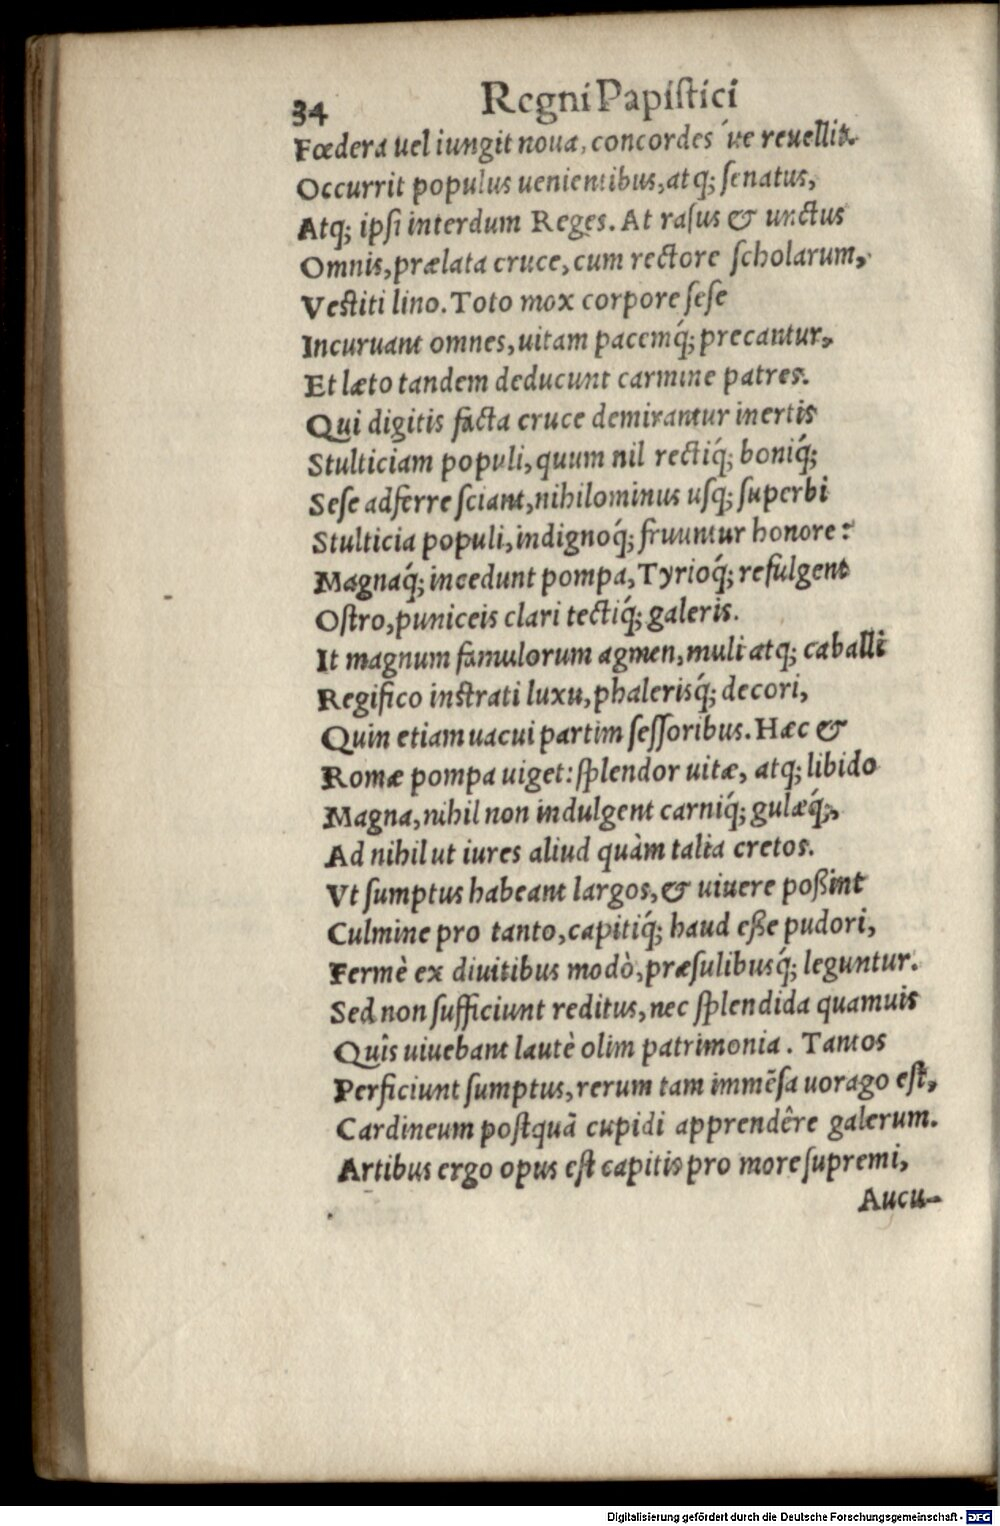 34 Regni Papistici
Fœdera uel iungit noua, concordes ´ue reuellit.
Occurrit populus uenientibus, atq; senatus,
Atq; ipsi interdum Reges. At rasus & unctus
Omnis, prælata cruce, cum rectore scholarum,
Vestiti lino. Toto mox corpore sese
Incuruant omnes, uitam pacemq́; precantur,
Et læto tandem deducunt carmine patres.
Qui digitis facta cruce demirantur inertis
Stulticiam populi, quum nil rectiq́; boniq́;
Sese adferre sciant, nihilominus usq; superbi
Stulticia populi, indignoq́; fruuntur honore:
Magnaq́; incedunt pompa, Tyrioq́; refulgent
Ostro, puniceis clari tectiq́; galeris.
It magnum famulorum agmen, muli atq; caballi
Regifico instrati luxu, phalerisq́; decori,
Quin etiam uacui partim sessoribus. Hæc &
Romæ pompa uiget: splendor uitæ, atq; libido
Magna, nihil non indulgent carniq́; gulæq́;,
Ad nihil ut iures aliud quàm talia cretos.
Vt sumptus habeant largos, & uiuere poßint
Culmine pro tanto, capitiq́; haud eße pudori,
Fermè ex diuitibus modò, præsulibusq́; leguntur.
Sed non sufficiunt reditus, nec splendida quamuis
Quîs uiuebant lautè olim patrimonia. Tantos
Perficiunt sumptus, rerum tam immẽsa uorago est,
Cardineum postquã cupidi apprendêre galerum.
Artibus ergo opus est capitis pro more supremi,
Aucu-
Digitalisierung gefördert durch die Deutsche Forschungsgemeinschaft - DFG